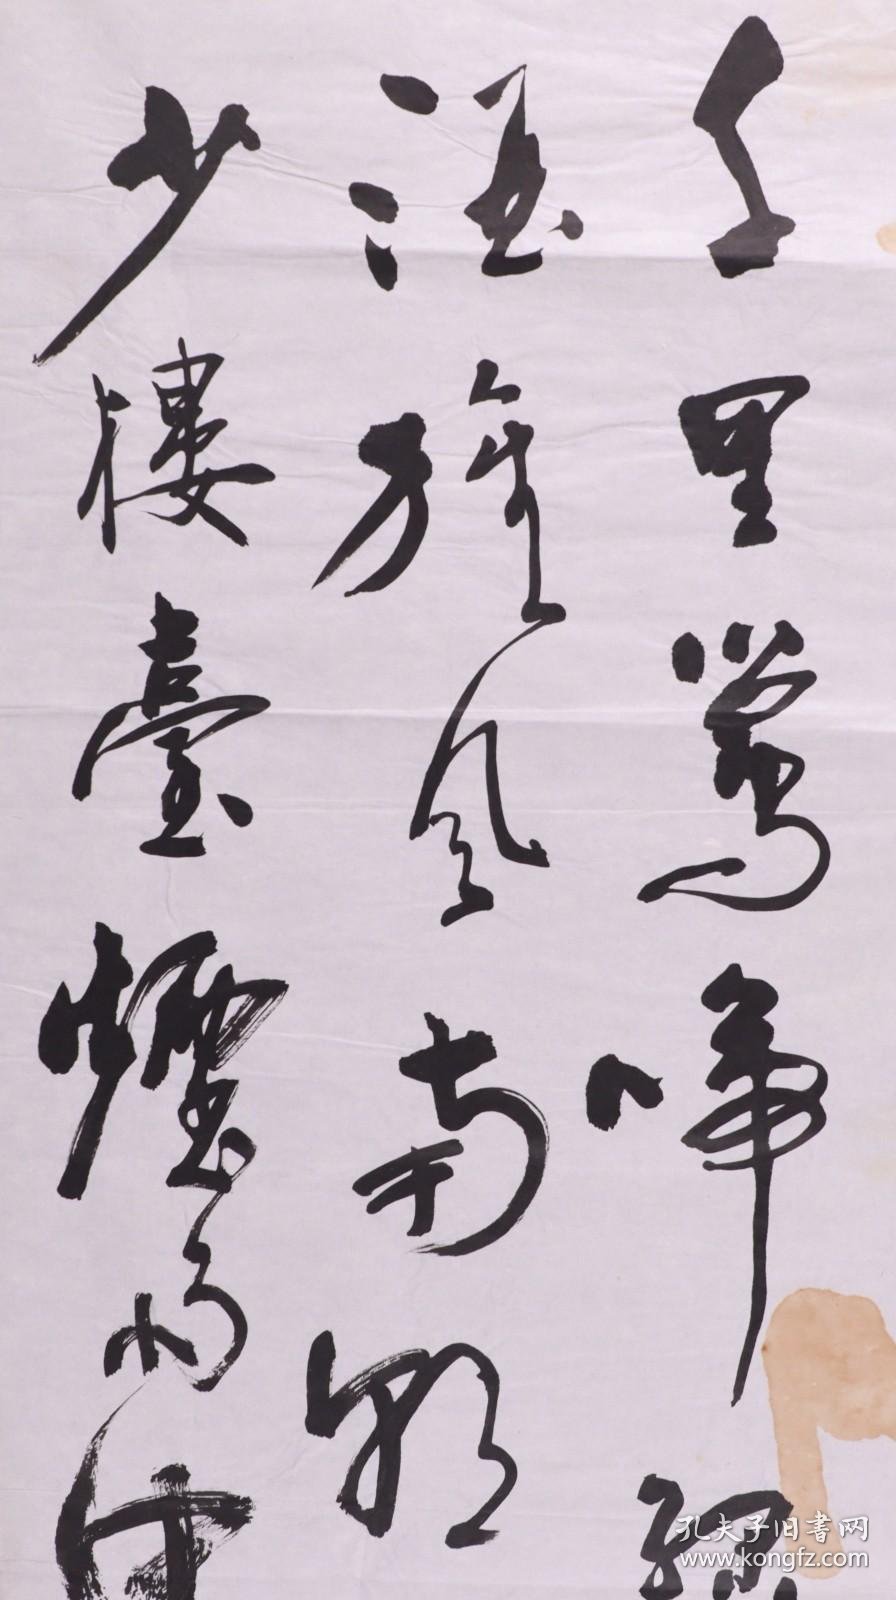 千里鶯啼綠
酒旗風南朝
少樓臺煙雨中
孔夫子旧書网
www.kongfz.com